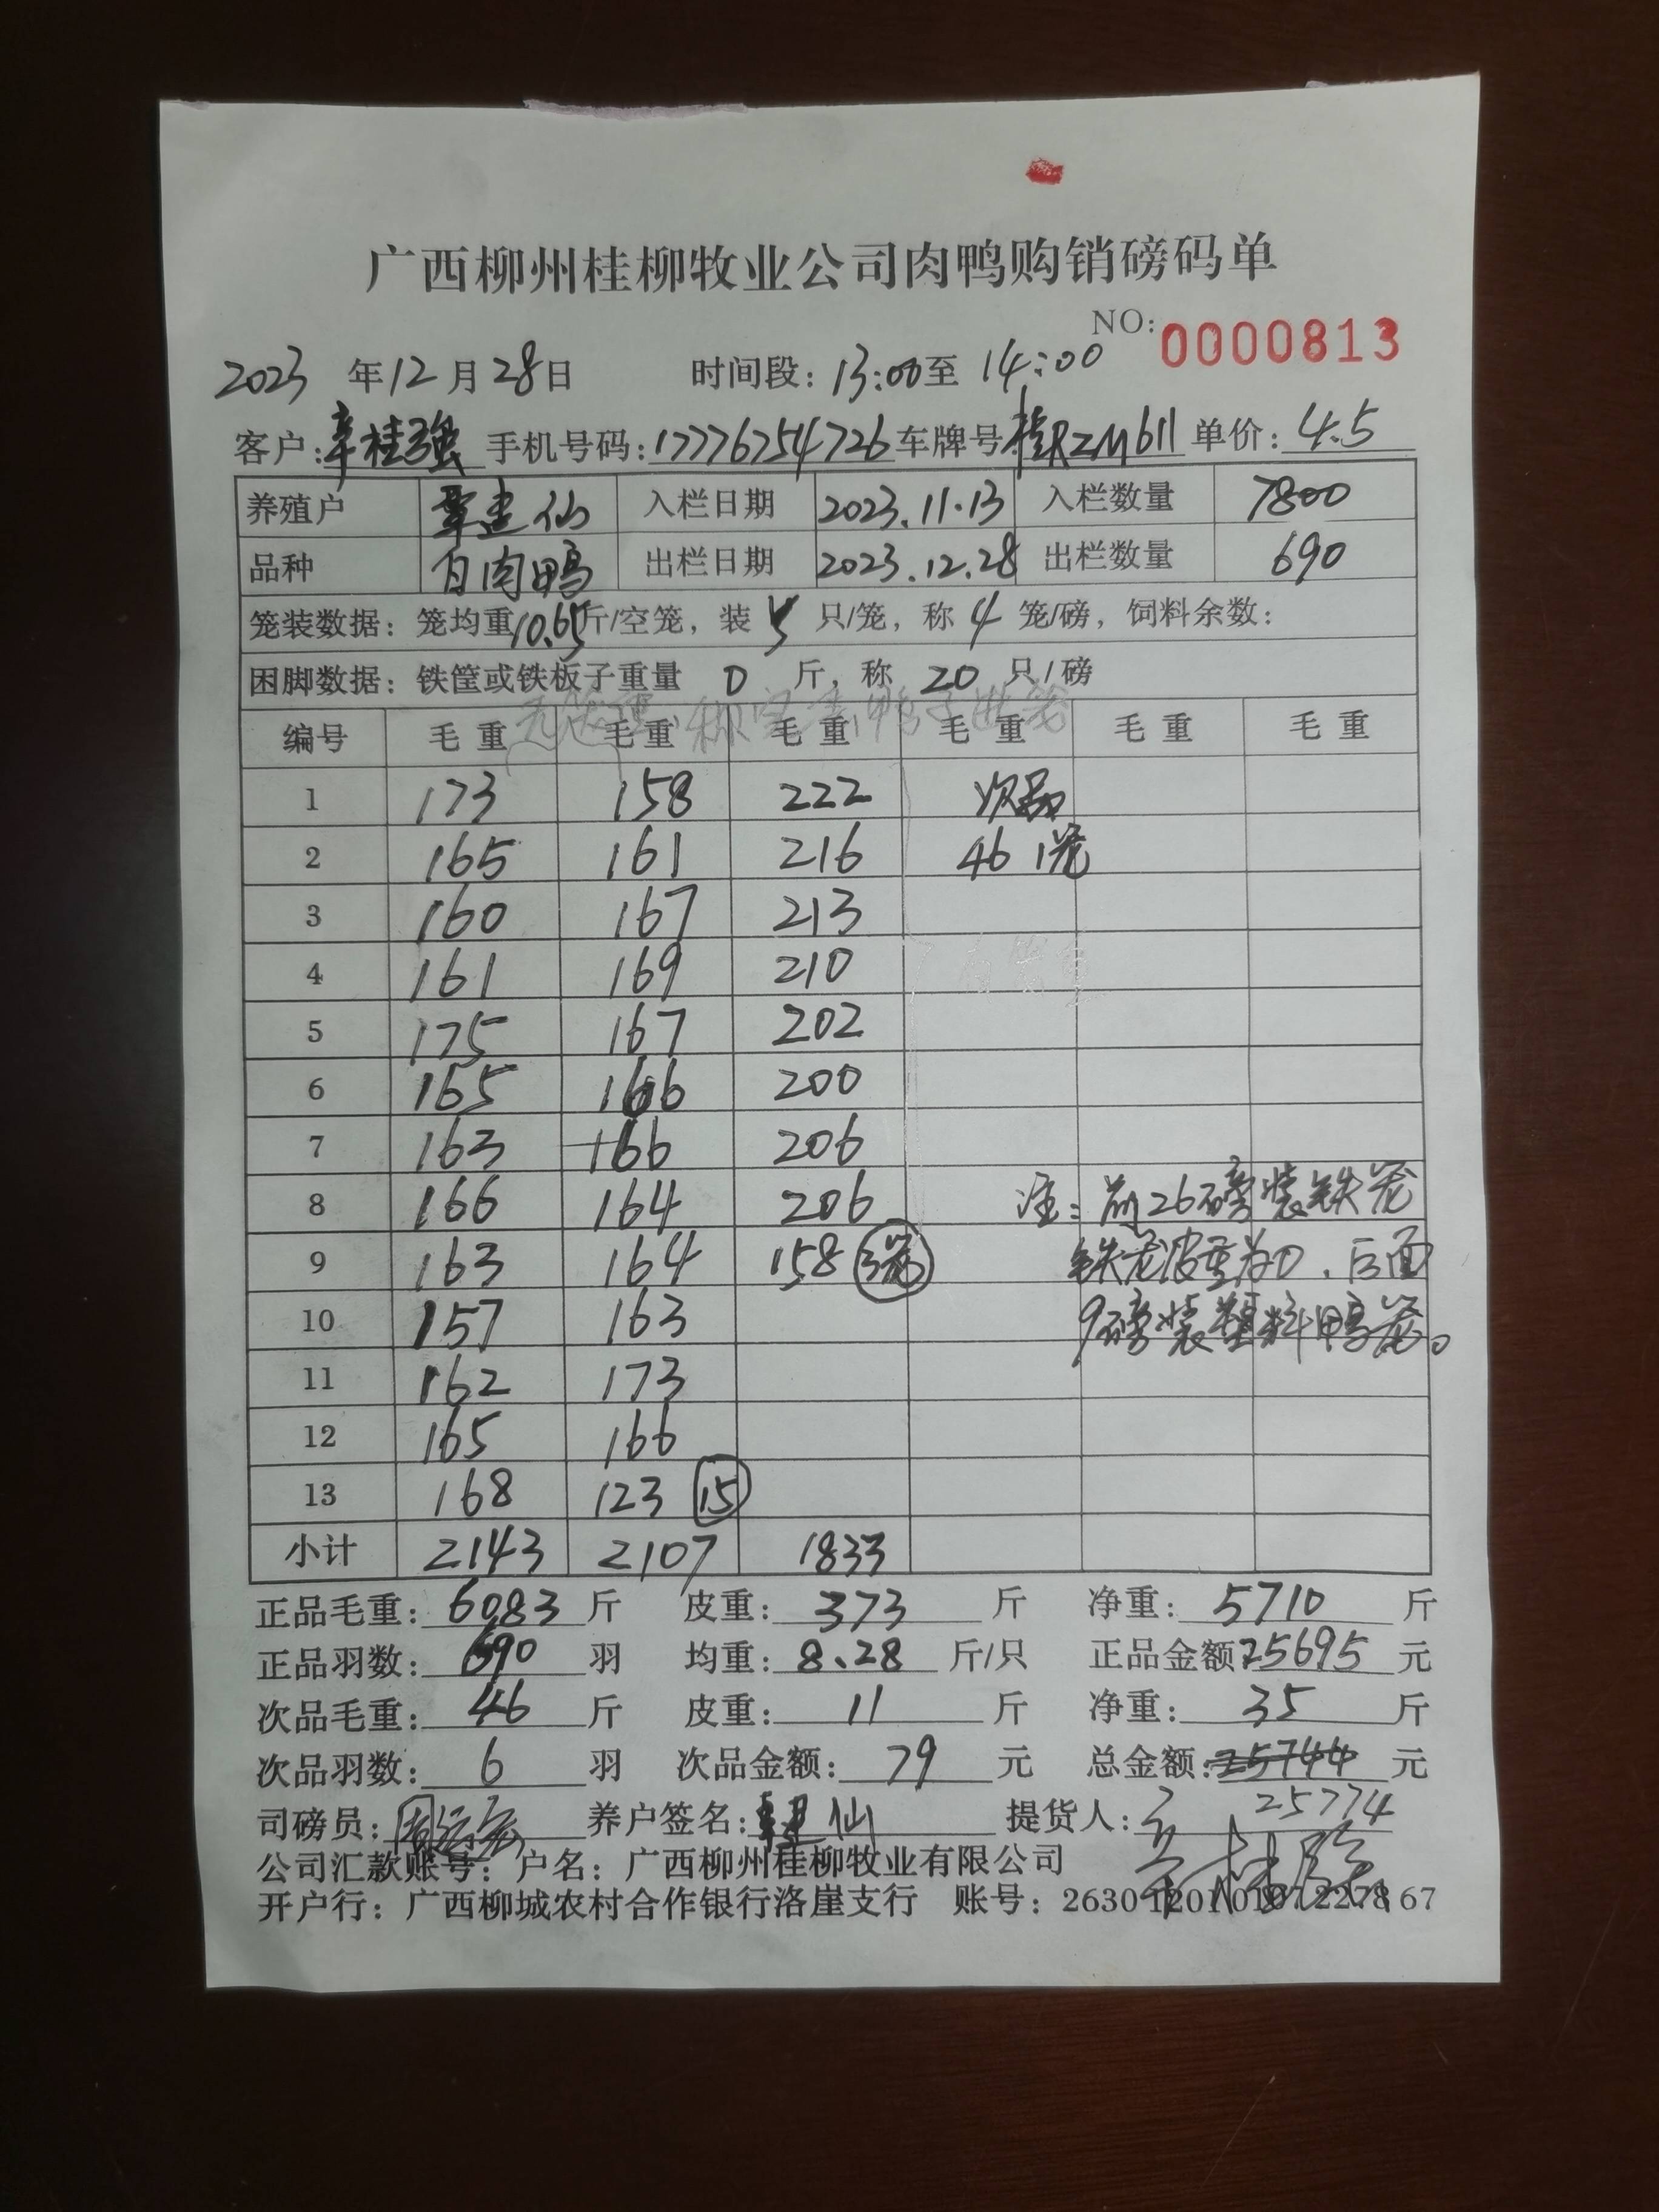 广西柳州桂柳牧业公司肉鸭购销磅码单
NO: 0000813
2023 年 12 月 28 日 时间段: 13:00 至 14:00
客户: 辛桂强 手机号码: 17776754726 车牌号 桂RZM611 单价: 4.5
养殖户 覃建仙 入栏日期 2023.11.13 入栏数量 7800
品种 白肉鸭 出栏日期 2023.12.28 出栏数量 690
笼装数据: 笼均重 10.65 斤/空笼, 装 5 只/笼, 称 4 笼/磅, 饲料余数:
困脚数据: 铁筐或铁板子重量 0 斤, 称 20 只/磅
编号 毛重 毛重 毛重 毛重 毛重 毛重
1 173 158 222 次品
2 165 161 216 46 1笼
3 160 167 213
4 161 169 210
5 175 167 202
6 165 166 200
7 163 166 206
8 166 164 206 注: 前26磅装铁笼
9 163 164 158 3笼 铁笼皮重为0, 后面
10 157 163 9磅装塑料鸭笼。
11 162 173
12 165 166
13 168 123 15
小计 2143 2107 1833
正品毛重: 6083 斤 皮重: 373 斤 净重: 5710 斤
正品羽数: 690 羽 均重: 8.28 斤/只 正品金额 25695 元
次品毛重: 46 斤 皮重: 11 斤 净重: 35 斤
次品羽数: 6 羽 次品金额: 79 元 总金额: 25744 元
25774
司磅员: 养户签名: 覃建仙 提货人:
公司汇款账号: 户名: 广西柳州桂柳牧业有限公司
开户行: 广西柳城农村合作银行洛崖支行 账号: